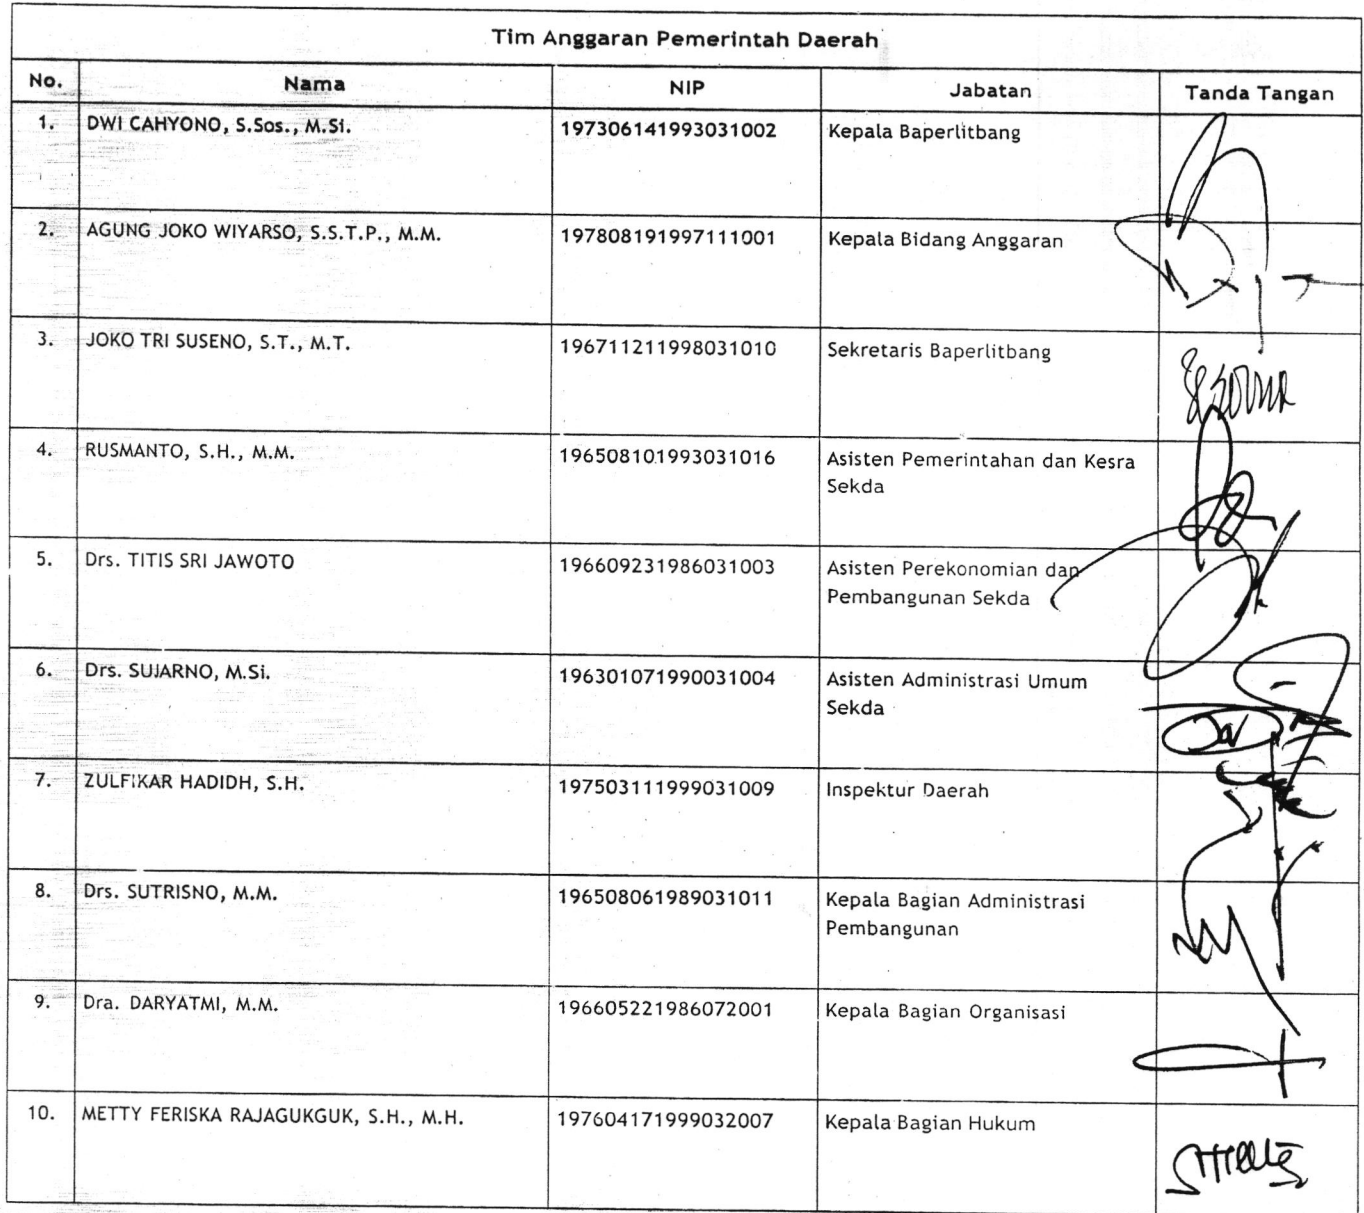 Tim Anggaran Pemerintah Daerah
No. Nama NIP Jabatan Tanda Tangan
1. DWI CAHYONO, S.Sos., M.Si. 197306141993031002 Kepala Baperlitbang
2. AGUNG JOKO WIYARSO, S.S.T.P., M.M. 197808191997111001 Kepala Bidang Anggaran
3. JOKO TRI SUSENO, S.T., M.T. 196711211998031010 Sekretaris Baperlitbang
4. RUSMANTO, S.H., M.M. 196508101993031016 Asisten Pemerintahan dan Kesra
Sekda
5. Drs. TITIS SRI JAWOTO 196609231986031003 Asisten Perekonomian dan
Pembangunan Sekda
6. Drs. SUJARNO, M.Si. 196301071990031004 Asisten Administrasi Umum
Sekda
7. ZULFIKAR HADIDH, S.H. 197503111999031009 Inspektur Daerah
8. Drs. SUTRISNO, M.M. 196508061989031011 Kepala Bagian Administrasi
Pembangunan
9. Dra. DARYATMI, M.M. 196605221986072001 Kepala Bagian Organisasi
10. METTY FERISKA RAJAGUKGUK, S.H., M.H. 197604171999032007 Kepala Bagian Hukum